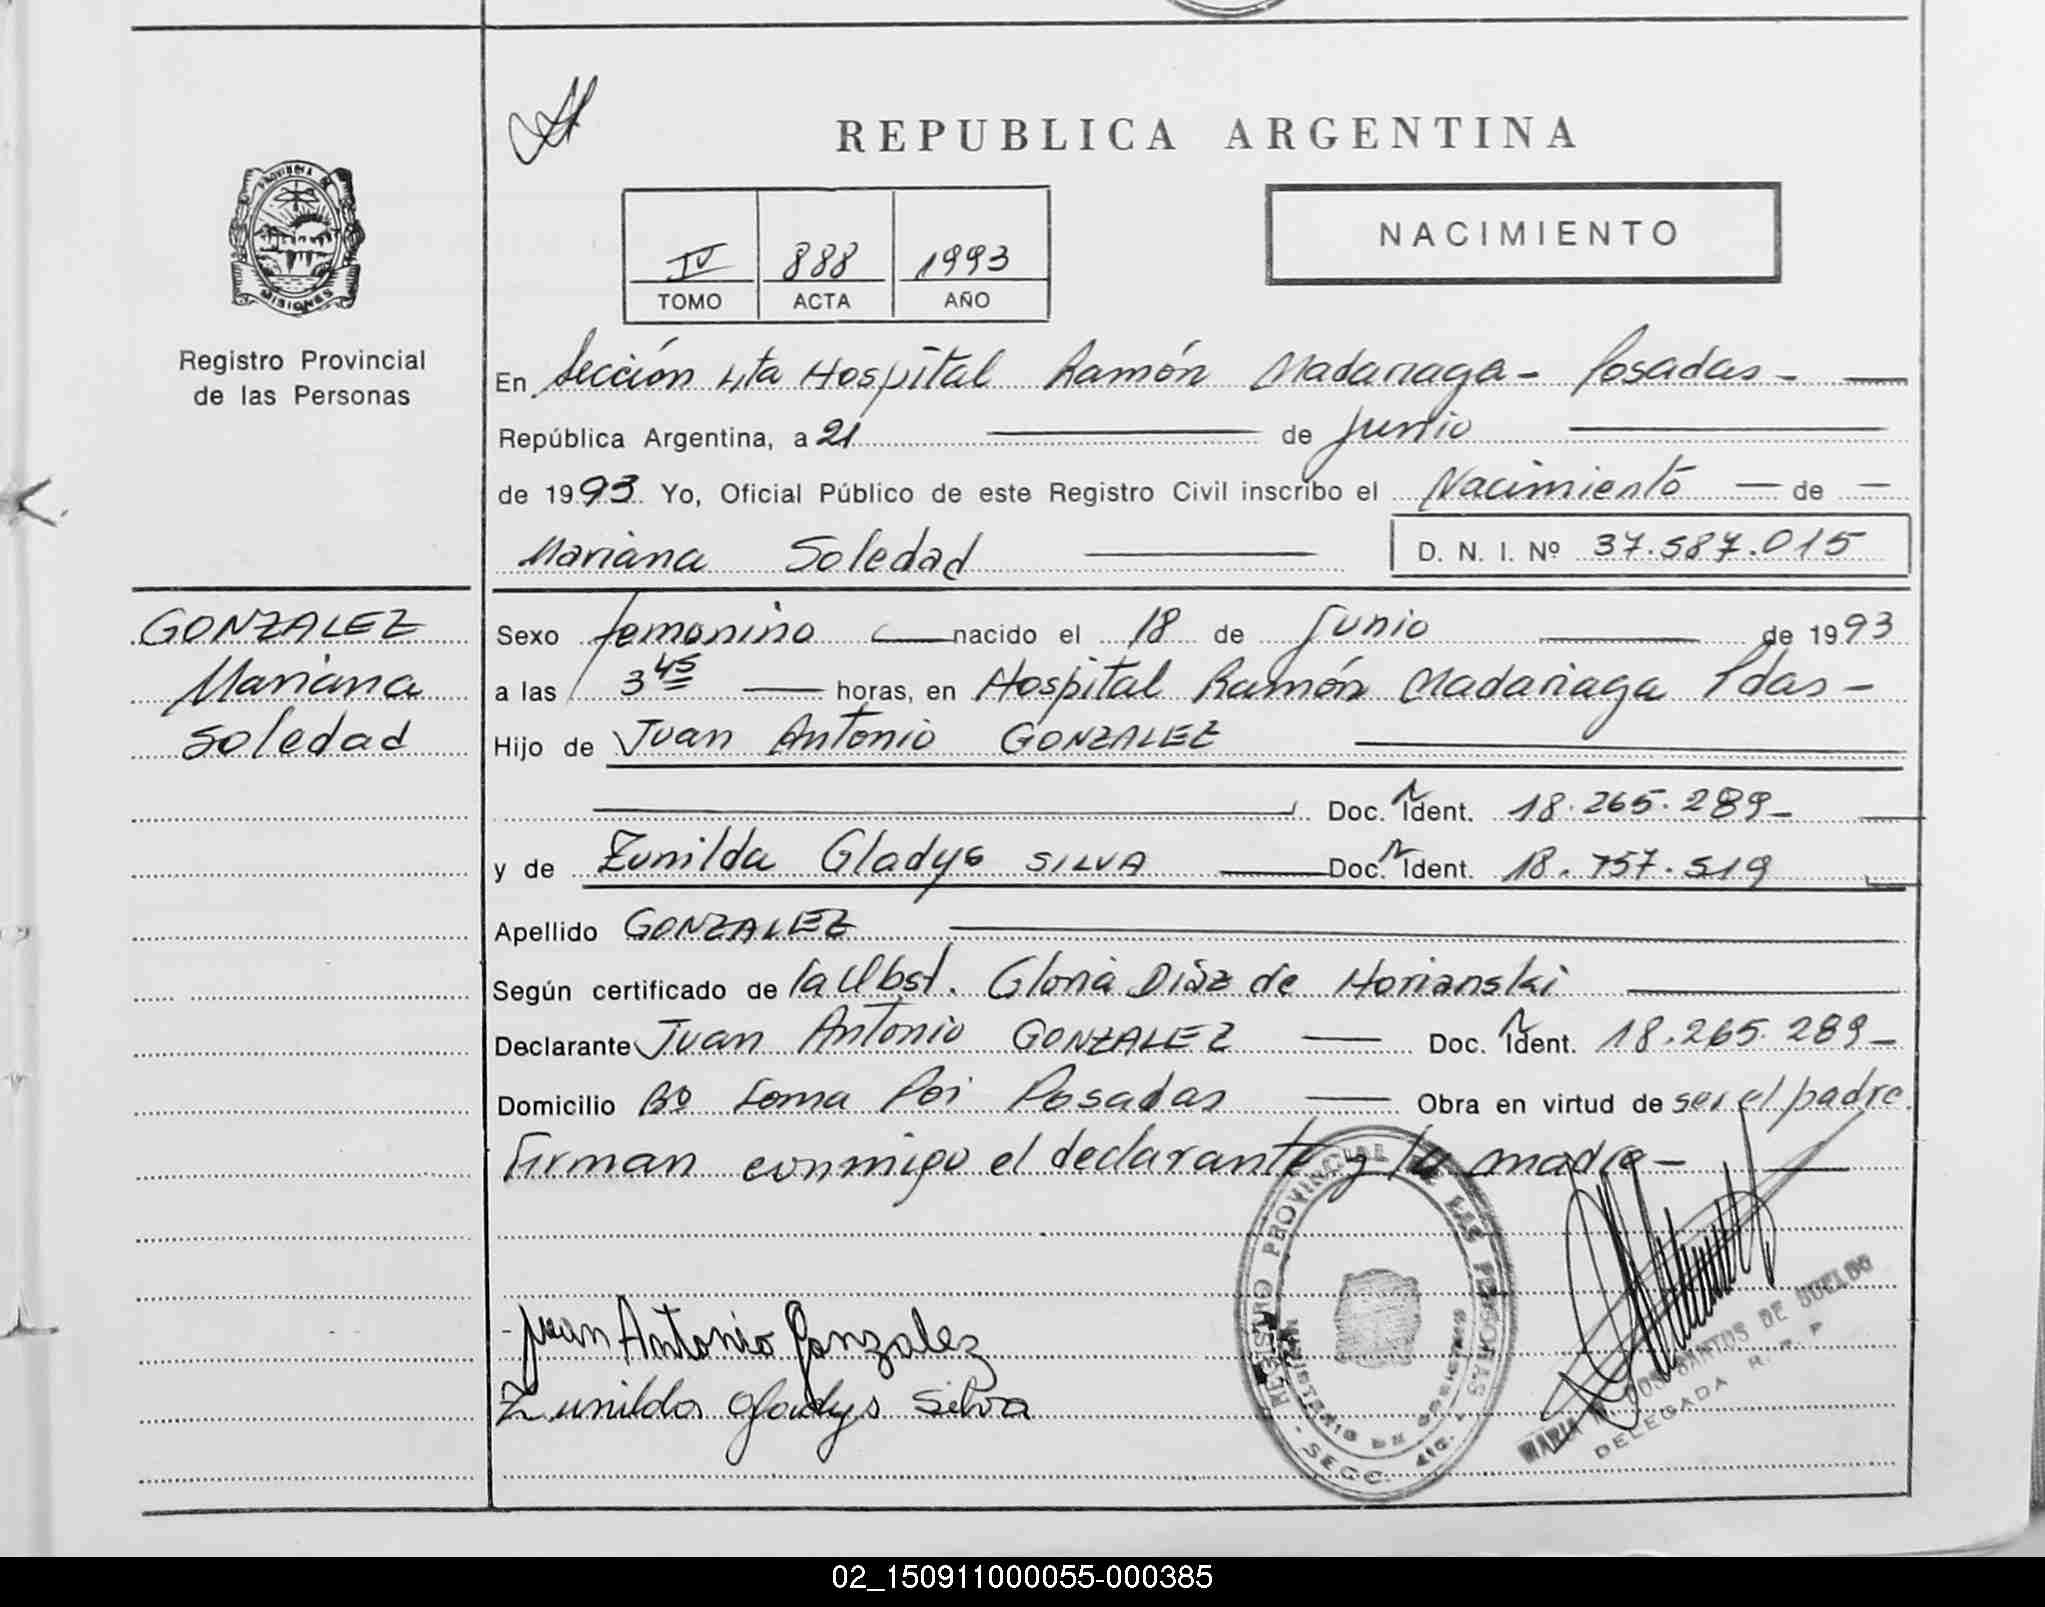 REPUBLICA ARGENTINA
PROVINCIA DE
MISIONES
Registro Provincial
de las Personas
IV 888 1993
TOMO ACTA AÑO
NACIMIENTO
En Sección 4ta Hospital Ramón Madariaga - Posadas -
República Argentina, a 21 de Junio
de 1993 Yo, Oficial Público de este Registro Civil inscribo el Nacimiento de
Mariana Soledad D. N. I. Nº 37.587.015
GONZALEZ
Mariana
Soledad
Sexo femenino nacido el 18 de Junio de 1993
a las 3 45 horas, en Hospital Ramón Madariaga Pdas -
Hijo de Juan Antonio GONZALEZ
Doc. Ident. 18.265.289-
y de Zunilda Gladys SILVA Doc. Ident. 18.757.519
Apellido GONZALEZ
Según certificado de la Obst. Gloria Diaz de Horianski
Declarante Juan Antonio GONZALEZ Doc. Ident. 18.265.289-
Domicilio Bº Loma Poi Posadas Obra en virtud de ser el padre.
Firman conmigo el declarante y la madre -
Juan Antonio Gonzalez
Zunilda Gladys Silva
REGISTRO PROVINCIAL DE LAS PERSONAS
MINISTERIO DE GOBIERNO
- SECC.
MARIA DOS SANTOS DE SUELDO
DELEGADA R. P. P
02_150911000055-000385